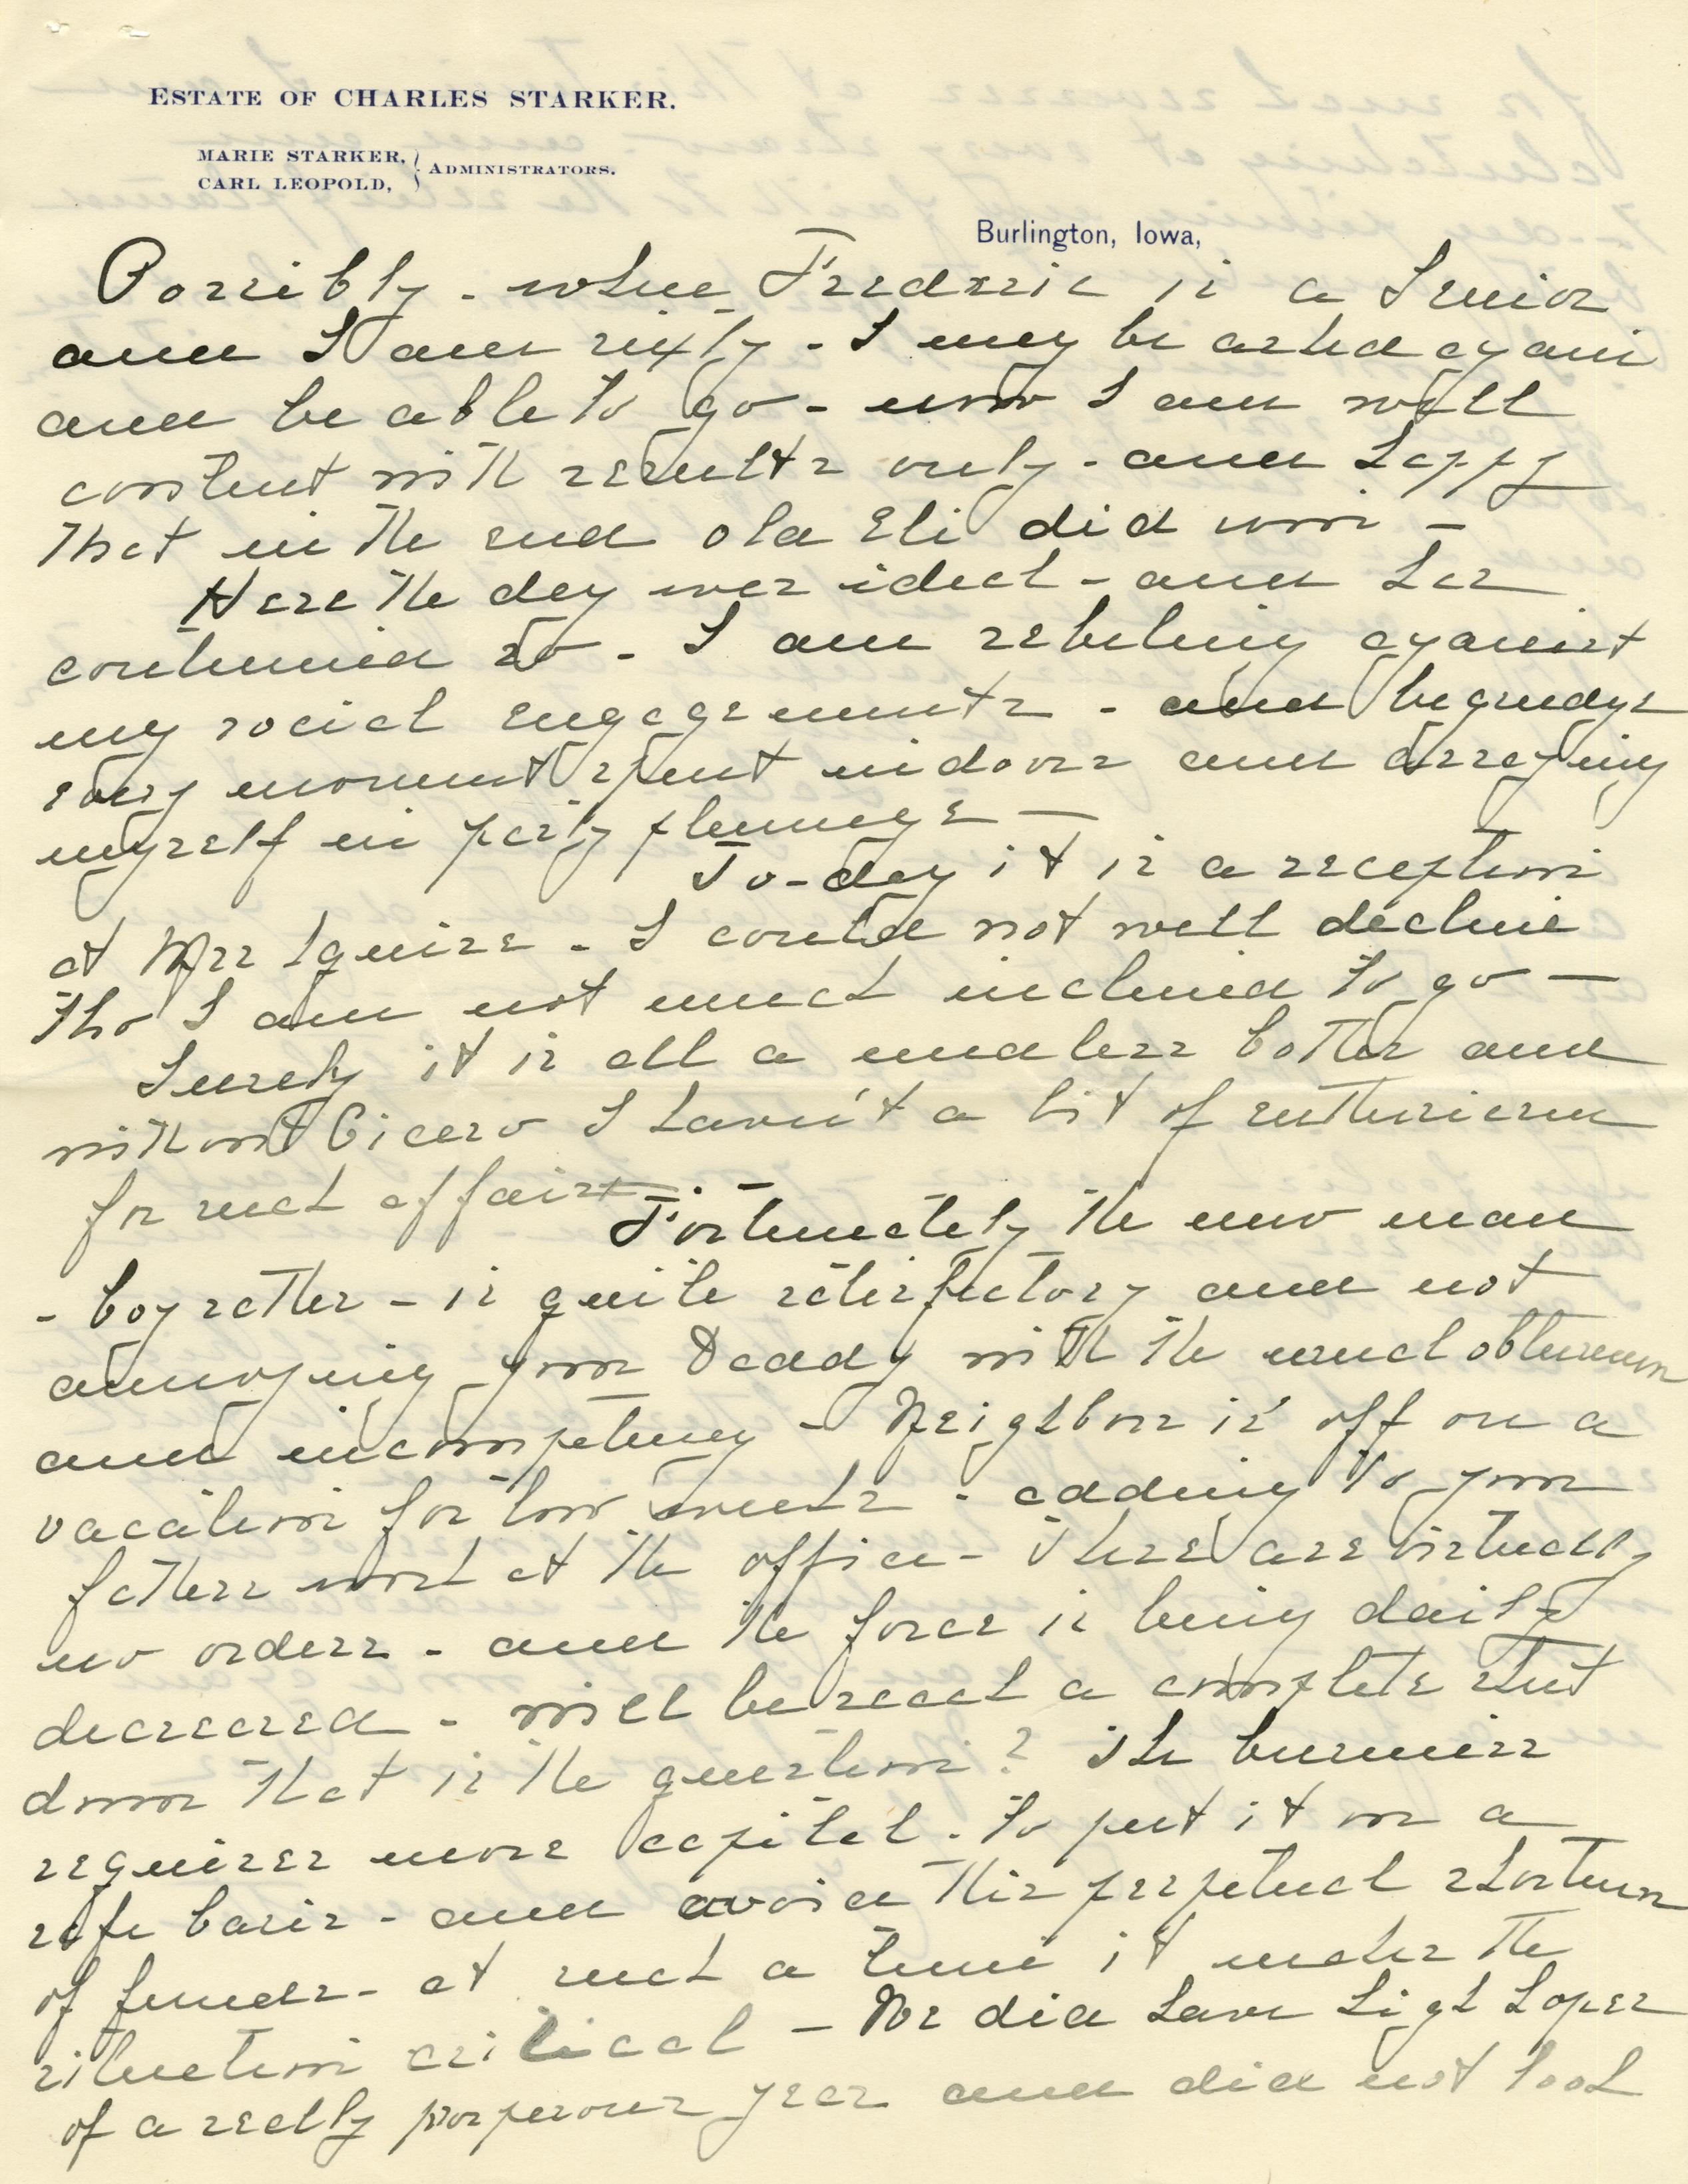 ESTATE OF CHARLES STARKER.
MARIE STARKER,
CARL LEOPOLD,
ADMINISTRATORS.
Burlington, Iowa,
Possibly - when Frederic is a Senior
and I am sixty - I may be asked again
and be able to go - now I am well
content with results only - and happy
that in the end old Eli did win -
Here the day was ideal - and has
continued so - I am rebeling against
my social engagements - and begrudge
every moment spent indoors and arraying
myself in party plumage -
To-day it is a reception
at Mrs Squires - I could not well decline
tho I am not much inclined to go -
Surely it is all a endless bother and
without Cicero I haven't a bit of enthusiasm
for such affairs. -
Fortunately the new man
- boy rather - is quite satisfactory and not
annoying your Daddy with the usual obtuseness
and incompetency - Neighbour is off on a
vacation for two weeks - adding to your
fathers work at the office - There are virtually
no orders - and the force is being daily
decreased - will be reach a complete shut
down that is the question? The business
requires more capital - to put it on a
safe basis - and avoid this perpetual shortness
of funds - at such a time it makes the
situation critical - We did have high hopes
of a really prosperous year and did not look